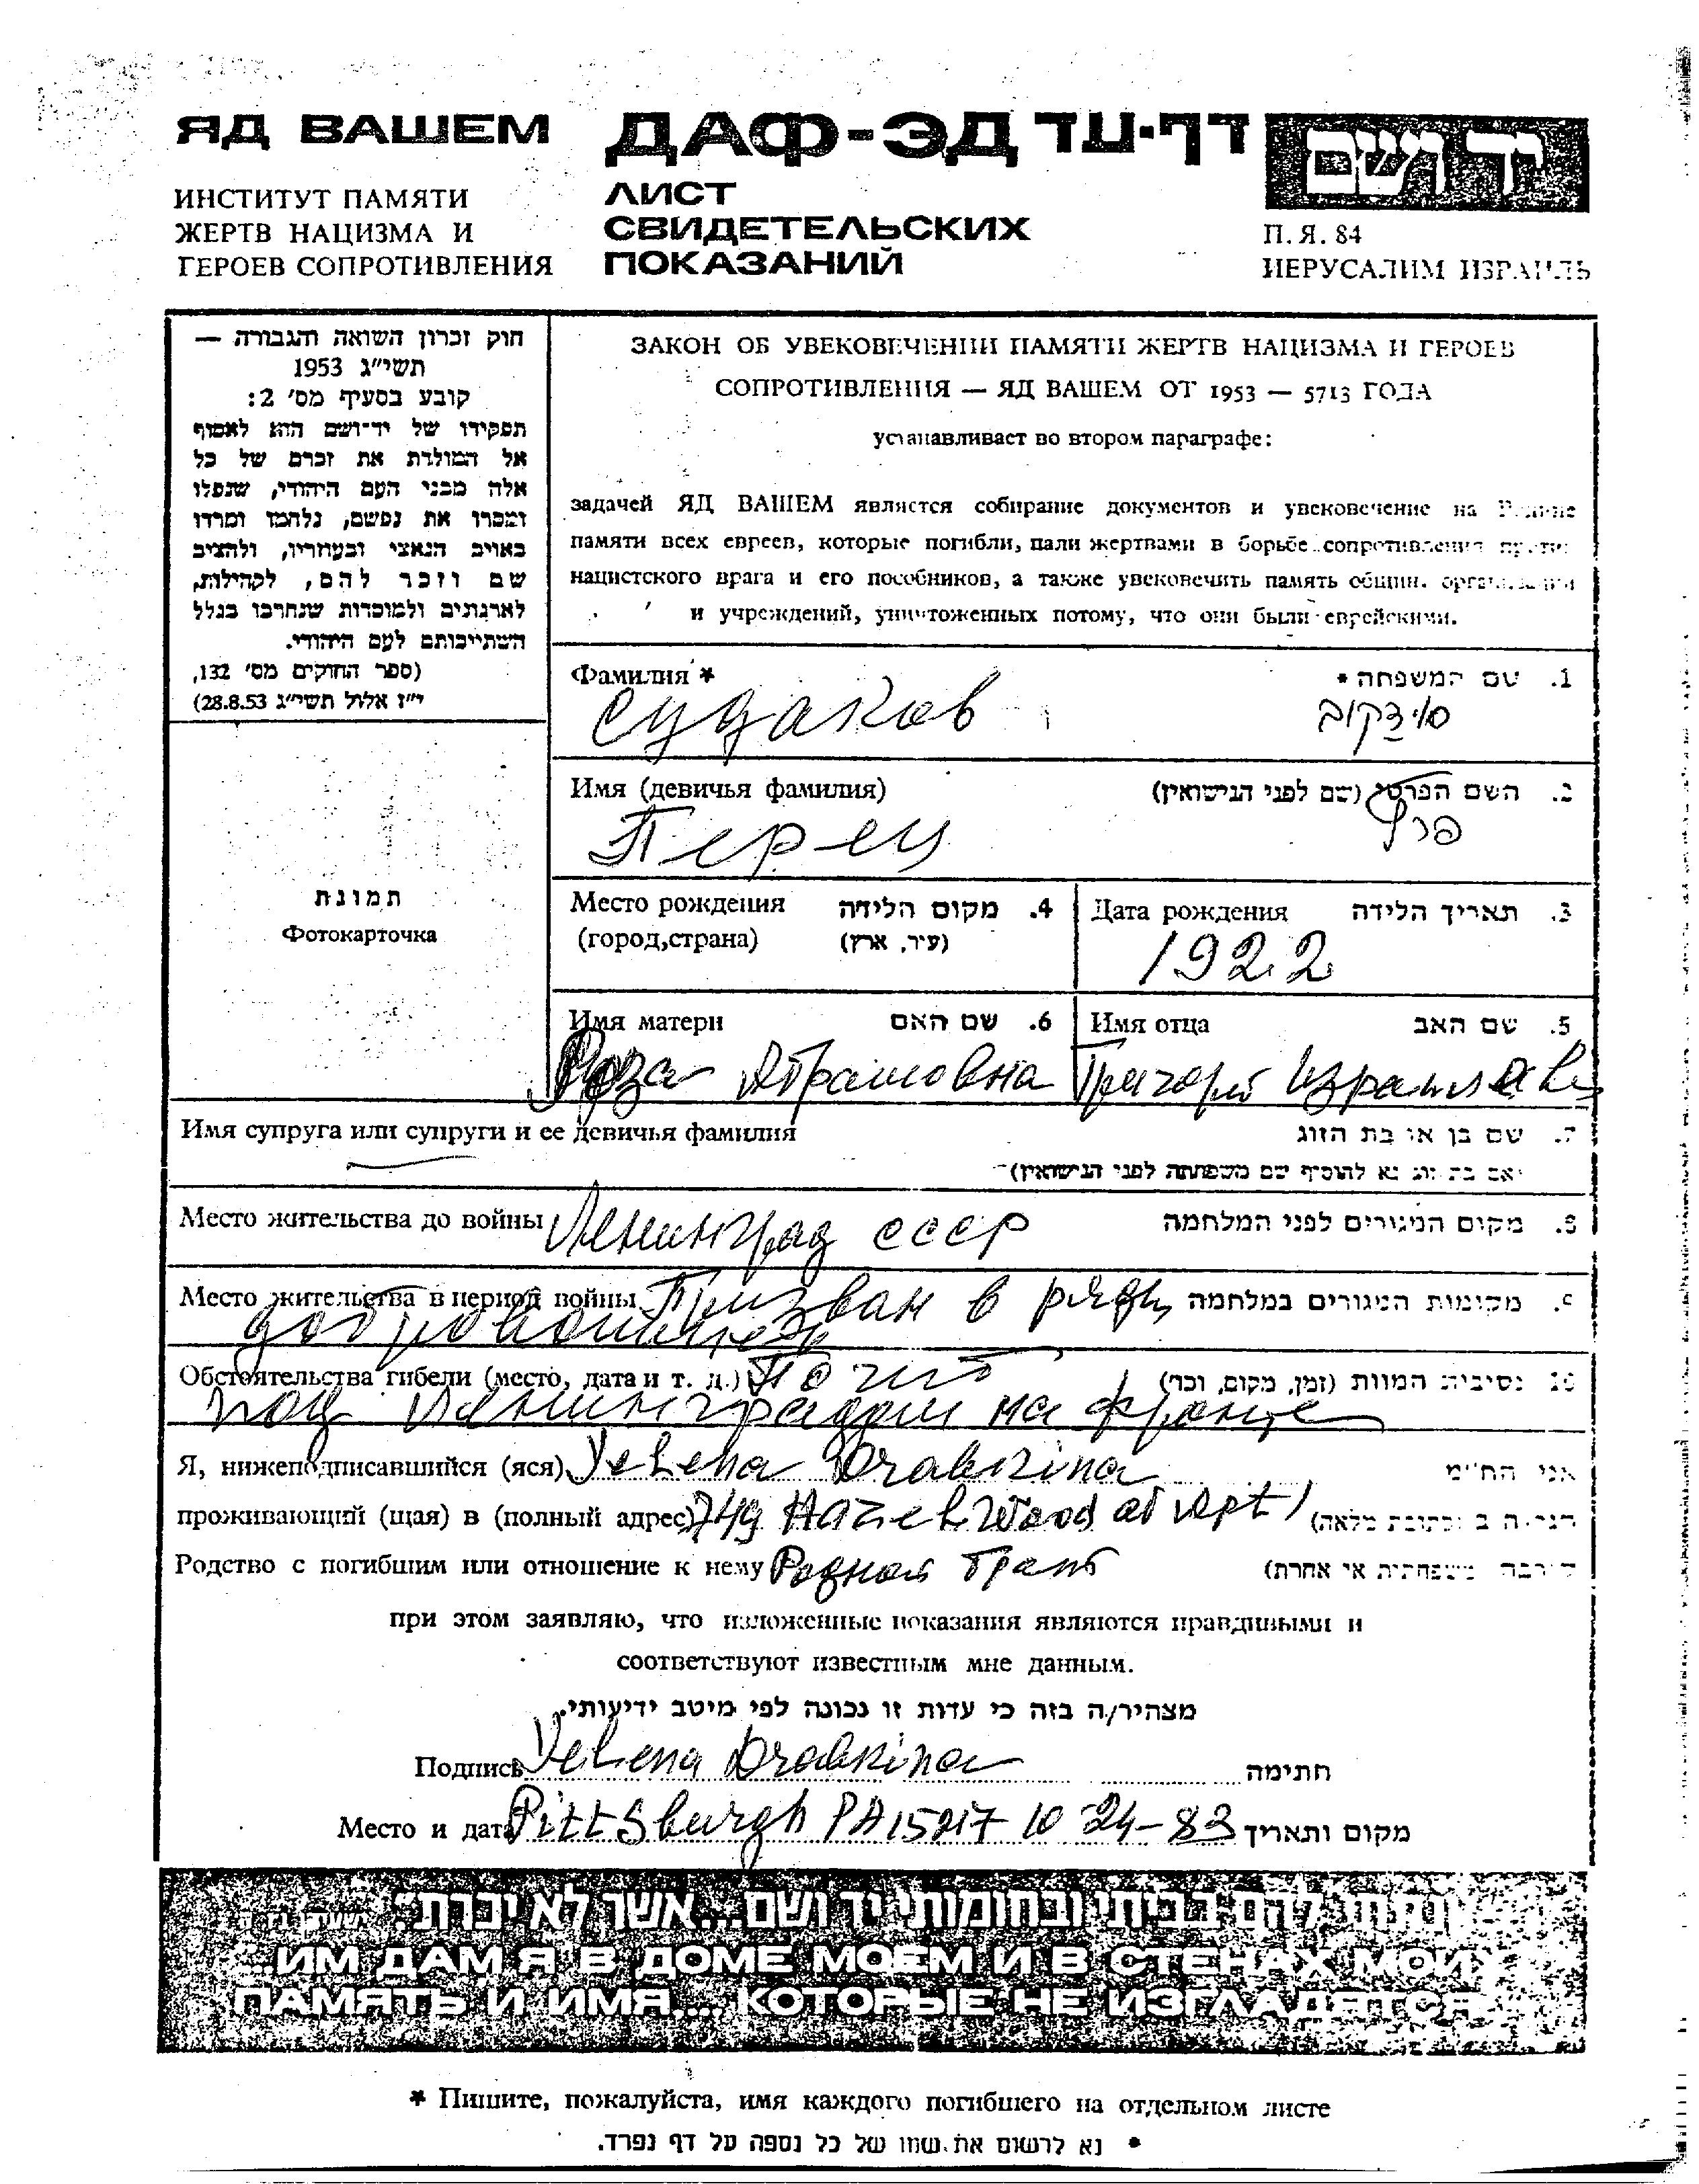 ЯД ВАШЕМ
ИНСТИТУТ ПАМЯТИ
ЖЕРТВ НАЦИЗМА И
ГЕРОЕВ СОПРОТИВЛЕНИЯ
ДАФ-ЭД דף-עד
ЛИСТ
СВИДЕТЕЛЬСКИХ
ПОКАЗАНИЙ
יד ושם
П. Я. 84
ИЕРУСАЛИМ ИЗРАИЛЬ
חוק זכרון השואה והגבורה —
תשי"ג 1953
קובע בסעיף מס' 2:
תפקידו של יד-ושם הוא לאסוף
אל המולדת את זכרם של כל
אלה מבני העם היהודי, שנפלו
ומסרו את נפשם, נלחמו ומרדו
באויב הנאצי ובעוזריו, ולהציב
שם וזכר להם, לקהילות,
לארגונים ולמוסדות שנחרבו בגלל
השתייכותם לעם היהודי.
(ספר החוקים מס' 132,
י"ז אלול תשי"ג 28.8.53)
ЗАКОН ОБ УВЕКОВЕЧЕНИИ ПАМЯТИ ЖЕРТВ НАЦИЗМА И ГЕРОЕВ
СОПРОТИВЛЕНИЯ — ЯД ВАШЕМ ОТ 1953 — 5713 ГОДА
устанавливает во втором параграфе:
задачей ЯД ВАШЕМ является собирание документов и увековечение на Родине
памяти всех евреев, которые погибли, пали жертвами в борьбе сопротивления против
нацистского врага и его пособников, а также увековечить память общин, организаций
и учреждений, уничтоженных потому, что они были еврейскими.
Фамилия * 1. שם המשפחה *
Судаков סודקוב
Имя (девичья фамилия) 2. השם הפרטי (שם לפני הנישואין)
Перец פרץ
תמונת
Фотокарточка
Место рождения 4. מקום הלידה
(город,страна) (עיר, ארץ)
Дата рождения 3. תאריך הלידה
1922
Имя матери 6. שם האם
Роза Абрамовна
Имя отца 5. שם האב
Григорий
Имя супруга или супруги и ее девичья фамилия 7. שם בן או בת הזוג
Место жительства до войны Ленинград СССР 8. מקום המגורים לפני המלחמה
Место жительства в период войны Призван в ряды 9. מקומות המגורים במלחמה
Обстоятельства гибели (место, дата и т. д.) 10 נסיבות המוות (זמן, מקום, וכו')
под Ленинградом на фронте
Я, нижеподписавшийся (яся) Yelena Drabkina אני הח"מ
проживающий (щая) в (полный адрес) Apt 1
Родство с погибшим или отношение к нему Родной брат
при этом заявляю, что изложенные показания являются правдивыми и
соответствуют известным мне данным.
מצהיר/ה בזה כי עדות זו נכונה לפי מיטב ידיעותי.
Подпись Yelena Drabkina חתימה
Место и дата Pittsburgh PA 15217 10-24-83 מקום ותאריך
ונתתי להם בביתי ובחומותי יד ושם...אשר לא יכרת".
...ИМ ДАМ Я В ДОМЕ МОЕМ И В СТЕНАХ МОИХ
ПАМЯТЬ И ИМЯ... КОТОРЫЕ НЕ ИЗГЛАДЯТСЯ
* Пишите, пожалуйста, имя каждого погибшего на отдельном листе
* נא לרשום את שמו של כל נספה על דף נפרד.